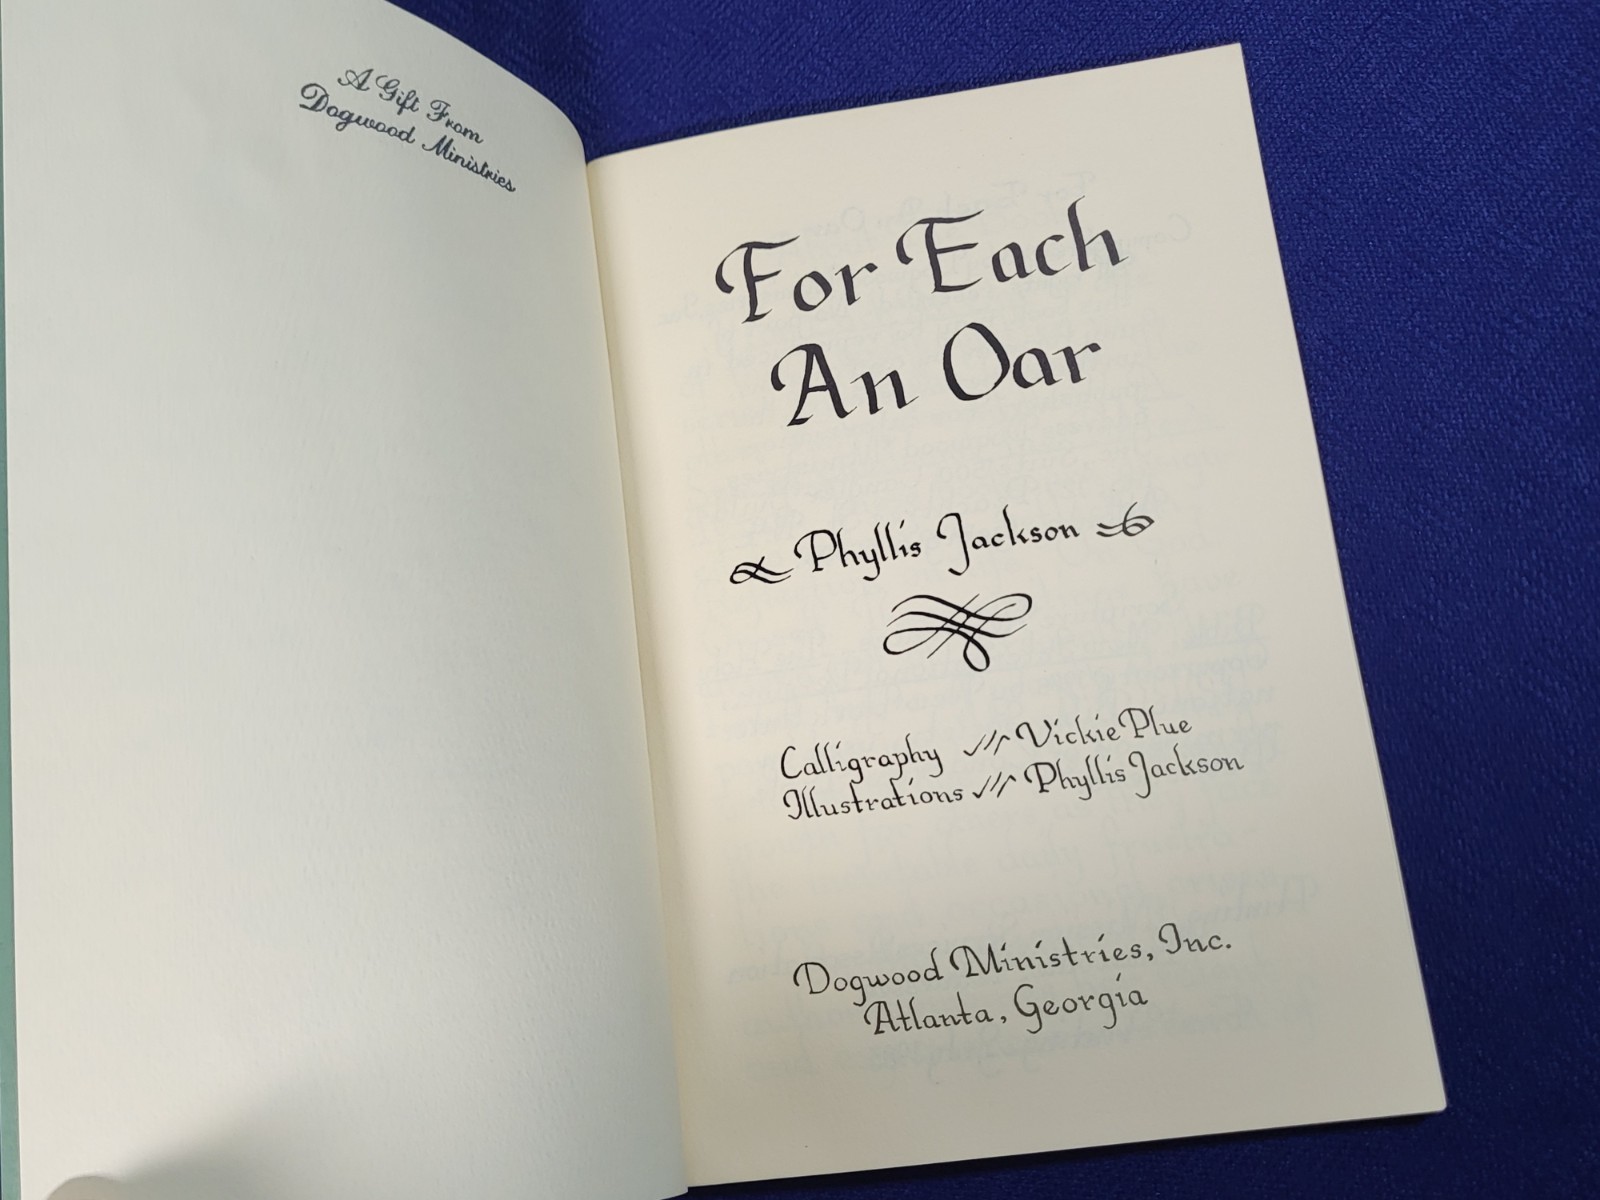 A Gift From
Dogwood Ministries
For Each
An Oar
Phyllis Jackson
Calligraphy Vickie Plue
Illustrations Phyllis Jackson
Dogwood Ministries, Inc.
Atlanta, Georgia